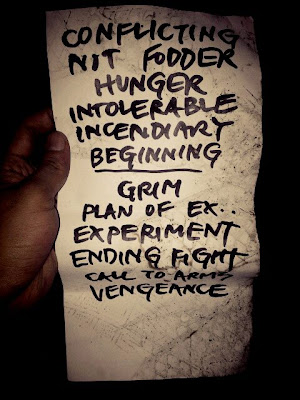 CONFLICTING
NIT FODDER
HUNGER
INTOLERABLE
INCENDIARY
BEGINNING
GRIM
PLAN OF EX..
EXPERIMENT
ENDING FIGHT
CALL TO ARMS
VENGEANCE